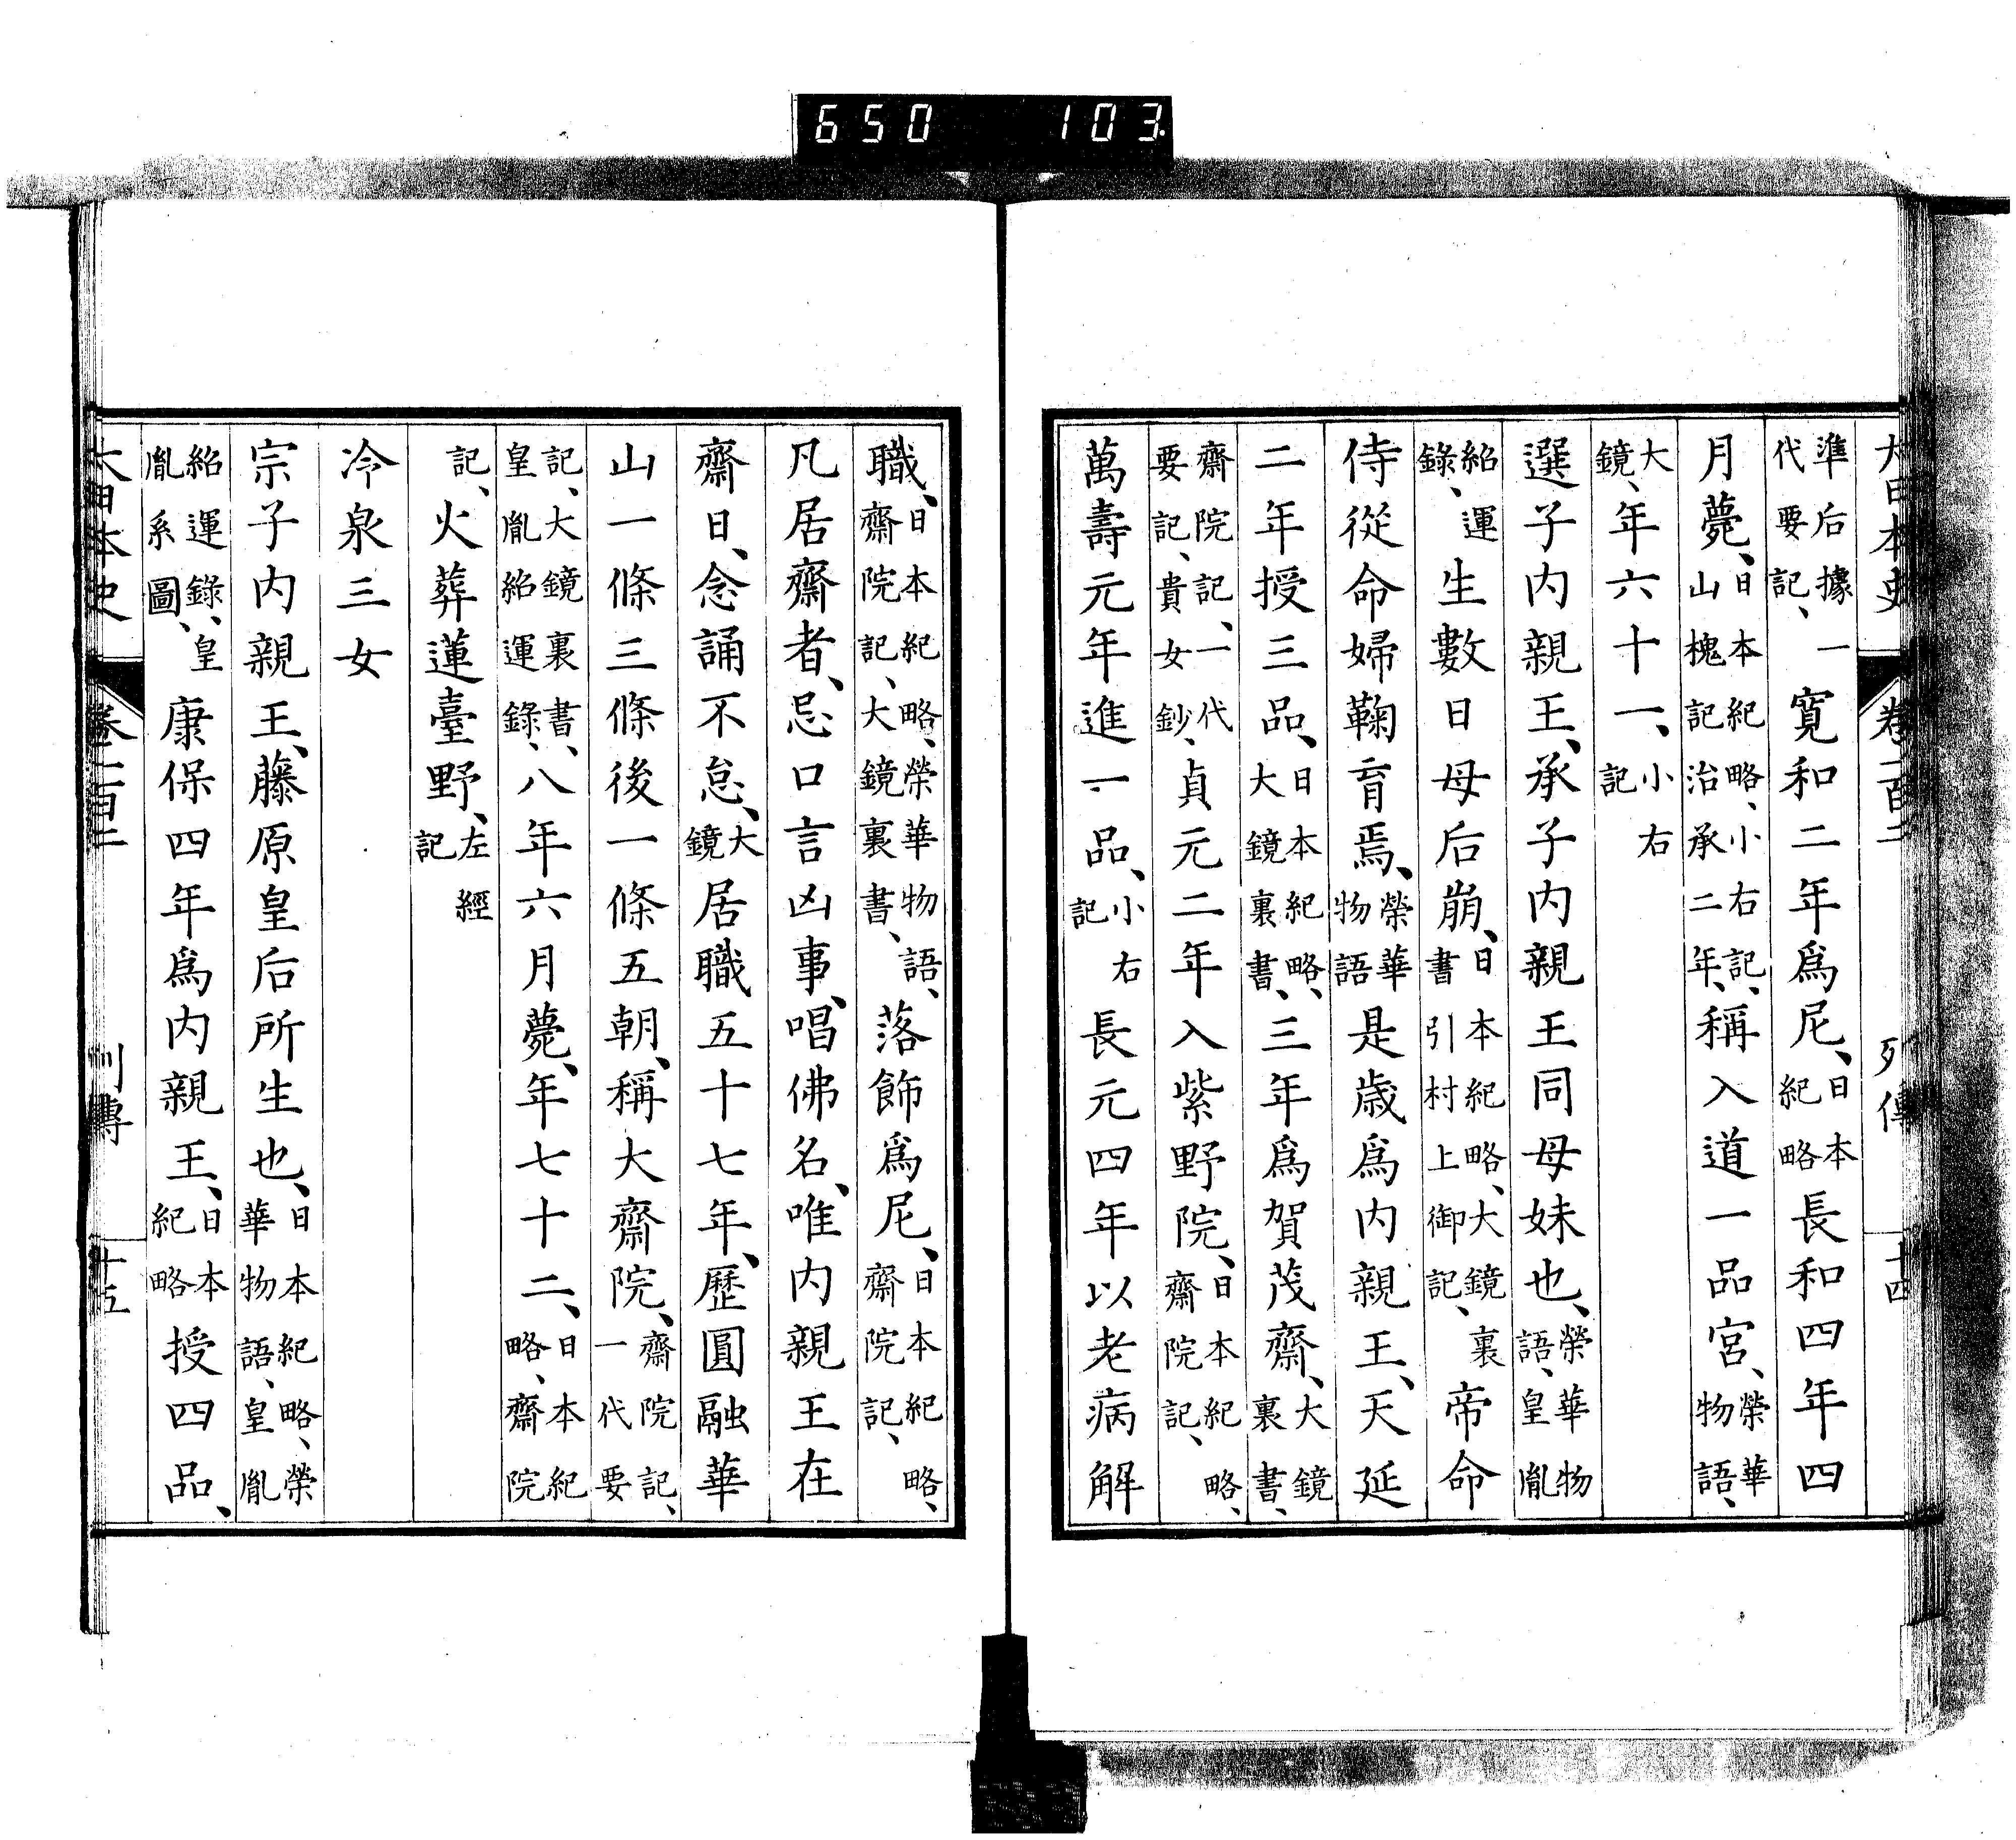 大日本史 卷一百二 列傳 十四
準后據一代要記、寬和二年爲尼、日本紀略長和四年四
月薨、日本紀略、小右記、山槐記治承二年、稱入道一品宮、榮華物語、
大鏡、年六十一、小右記
選子内親王、承子内親王同母妹也、榮華物語、皇胤
紹運錄、生數日母后崩、日本紀略、大鏡裏書引村上御記、帝命
侍從命婦鞠育焉、榮華物語是歳爲内親王、天延
二年授三品、日本紀略、大鏡裏書、三年爲賀茂齋、大鏡裏書、
齋院記、一代要記、貴女鈔、貞元二年入紫野院、日本紀略、齋院記、
萬壽元年進一品、小右記長元四年以老病解
職、日本紀略、榮華物語、齋院記、大鏡裏書、落飾爲尼、日本紀略、齋院記、
凡居齋者、忌口言凶事、唱佛名、唯内親王在
齋日、念誦不怠、大鏡居職五十七年、歷圓融華
山一條三條後一條五朝、稱大齋院、齋院記、一代要
記、大鏡裏書、皇胤紹運錄、八年六月薨、年七十二、日本紀略、齋院
記、火葬蓮臺野、左經記
冷泉三女
宗子内親王、藤原皇后所生也、日本紀略、榮華物語、皇胤
紹運錄、皇胤系圖、康保四年爲内親王、日本紀略授四品、
大日本史 卷一百二 列傳 十五